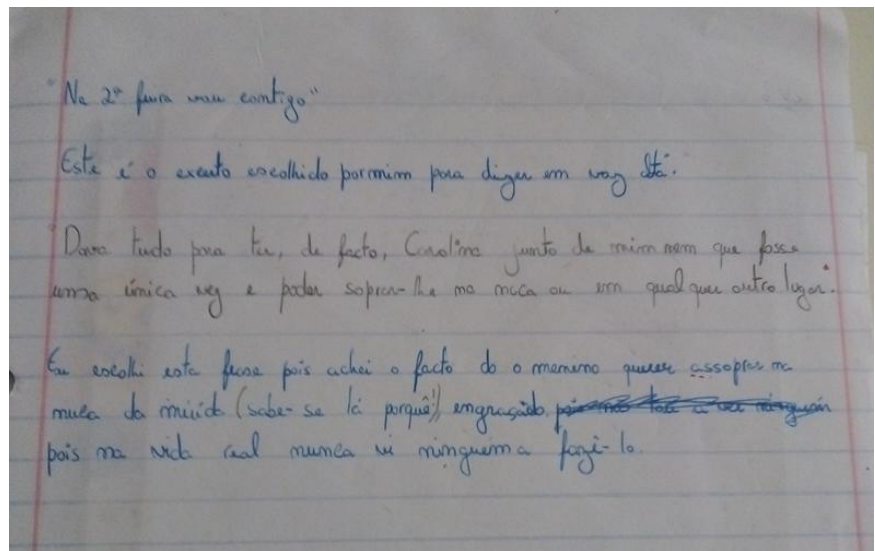 "Na 2ª feira vou contigo"
Este é o exerto escolhido por mim para dizer em voz alta:
"Dava tudo para ter, de facto, Carolina junto de mim nem que fosse
uma única vez e poder soprar-lhe na nuca ou em qualquer outro lugar."
Eu escolhi esta frase pois achei o facto do o menino querer assoprar na
nuca da miúda (sabe-se lá porquê!) engraçado,
pois na vida real nunca vi ninguém a fazê-lo.